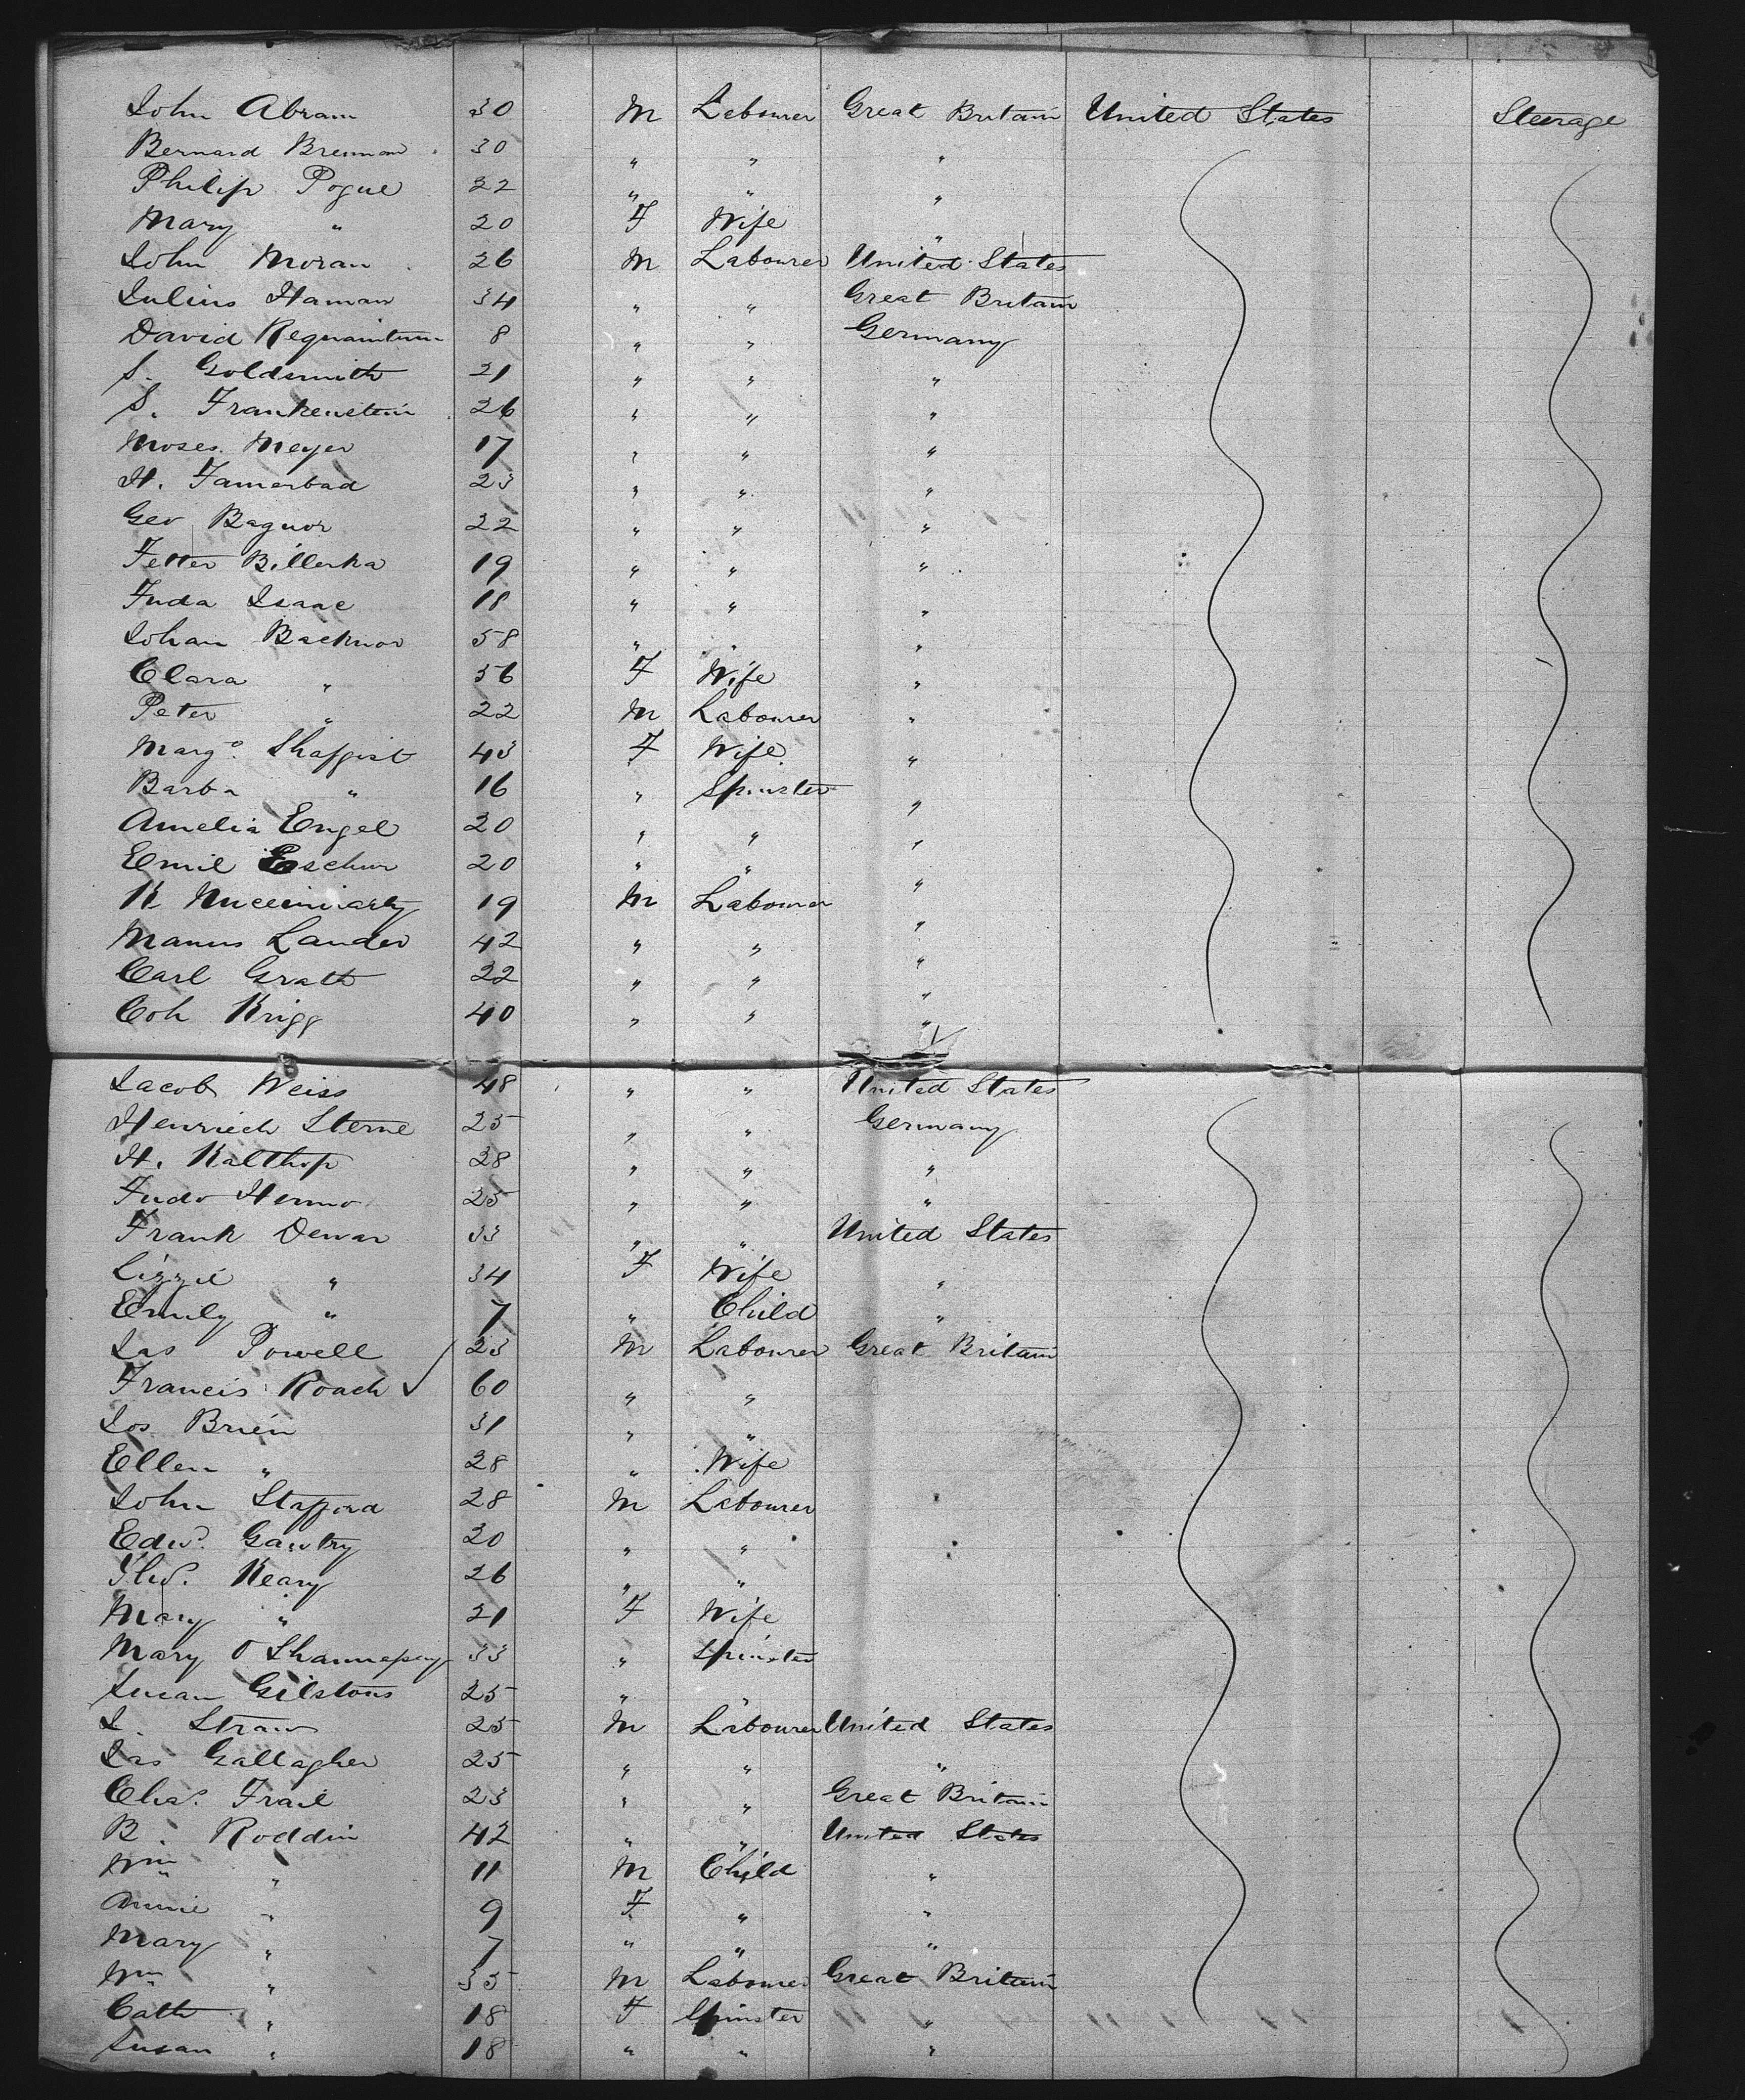 John Abram 30 M Labourer Great Britain United States Steerage
Bernard Brennan 30 " " "
Philip Pogue 22 " " "
Mary " 20 F Wife "
John Moran 26 M Labourer United States
Julius Haman 34 " " Great Britain
David 8 " " Germany
S. Goldsmith 21 " " "
S. Frankenstein 26 " " "
Moses Meyer 17 " " "
H. 23 " " "
Geo Bagnor 22 " " "
Billerka 19 " " "
Juda Isaac 18 " " "
Johan Backnor 58 " " "
Clara " 56 F Wife "
Peter " 22 M Labourer "
Margt. 43 F Wife "
Barba " 16 " Spinster "
Amelia Engel 20 " " "
Emil Eschur 20 " " "
K 19 M Labourer "
Manus Lander 42 " " "
Carl Grath 22 " " "
Coh Krigg 40 " " "
Jacob Weiss 48 " " United States
Henriech Sterne 25 " " Germany
H. Kalthop 28 " " "
Judo Henno 25 " " "
Frank Dewar 33 " " United States
Lizzie " 34 F Wife "
Emily " 7 " Child "
Jas Powell 23 M Labourer Great Britain
Francis Roach 60 " "
Jos Brien 31 " "
Ellen " 28 " Wife
John Stafford 28 M Labourer
Edwd. Gawtry 20 " "
Keary 26 " "
Mary " 21 F Wife
Mary O 33 " Spinster
Susan Gilstons 25 " "
J. Straw 25 M Labourer United States
Jas Gallagher 25 " " "
Chas. Frail 23 " " Great Britain
B. Roddin 42 " " United States
Wm " 11 M Child "
Annie " 9 F " "
Mary " 7 " " "
Wm " 35 M Labourer Great Britain
Cath " 18 F Spinster "
Susan " 18 " " "